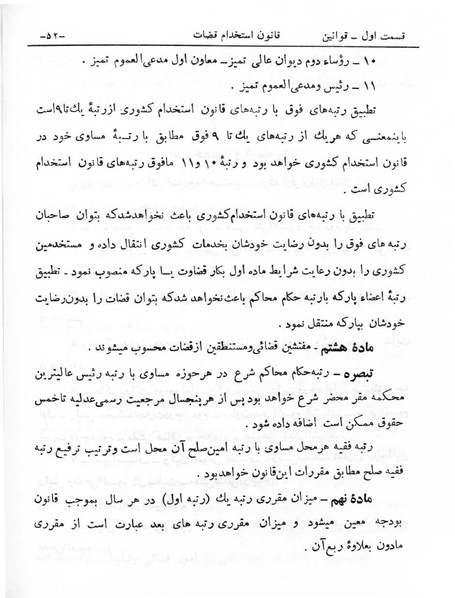 قسمت اول ـ قوانین قانون استخدام قضات ـ۵۲ـ
۱۰ ـ رؤساء دوم دیوان عالی تمیز ـ معاون اول مدعی‌العموم تمیز .
۱۱ ـ رئیس ومدعی‌العموم تمیز .
تطبیق رتبه‌های فوق با رتبه‌های قانون استخدام کشوری ازرتبهٔ یك‌تا۹است
باینمعنی که هریك از رتبه‌های یك‌تا ۹ فوق مطابق با رتبهٔ مساوی خود در
قانون استخدام کشوری خواهد بود و رتبهٔ ۱۰و۱۱ مافوق رتبه‌های قانون استخدام
کشوری است .
تطبیق با رتبه‌های قانون استخدام‌کشوری باعث نخواهدشدکه بتوان صاحبان
رتبه های فوق را بدون رضایت خودشان بخدمات کشوری انتقال داده و مستخدمین
کشوری را بدون رعایت شرایط ماده اول بکار قضاوت یا پارکه منصوب نمود ـ تطبیق
رتبهٔ اعضاء پارکه بارتبه حکام محاکم باعث‌نخواهدشدکه بتوان قضات را بدون‌رضایت
خودشان بپارکه منتقل نمود .
مادهٔ هشتم ـ مفتشین قضائی‌ومستنطقین ازقضات محسوب میشوند .
تبصره ـ رتبه‌حکام محاکم شرع در هرحوزه مساوی با رتبه رئیس عالیترین
محکمه مقر محضر شرع خواهد بود پس از هرپنجسال مرجعیت رسمی‌عدلیه تاخمس
حقوق ممکن است اضافه داده شود .
رتبه فقیه هرمحل مساوی با رتبه امین‌صلح آن محل است وترتیب ترفیع رتبه
فقیه صلح مطابق مقررات این‌قانون خواهدبود .
مادهٔ نهم ـ میزان مقرری رتبه یك (رتبه اول) در هر سال بموجب قانون
بودجه معین میشود و میزان مقرری رتبه های بعد عبارت است از مقرری
مادون بعلاوهٔ ربع‌آن .